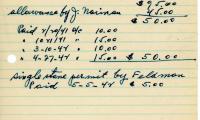 $95.00
allowance by J. Noiman 45.00
$50.00
Paid 7/30/41 4/c 10.00
" 10/1/41 " 15.00
" 3-10-41 " 10.00
" 4-27-41 " 15.00 $50.00
single stone permit by Feldman
Paid 5-5-44 $5.00